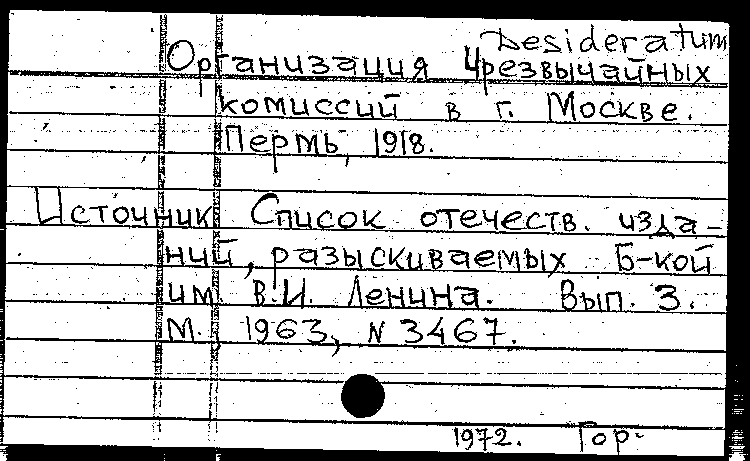 Desideratum
Организация Чрезвычайных
комиссий в г. Москве.
Пермь, 1918.
Источник Список отечеств. изда-
ний, разыскиваемых Б-кой
им. В.И. Ленина. Вып. 3.
М., 1963, N 3467.
1972. Гор.